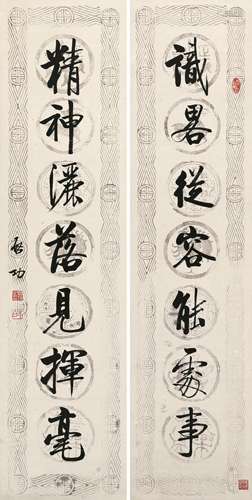 識畧從容能處事
精神灑落見揮毫
啓功